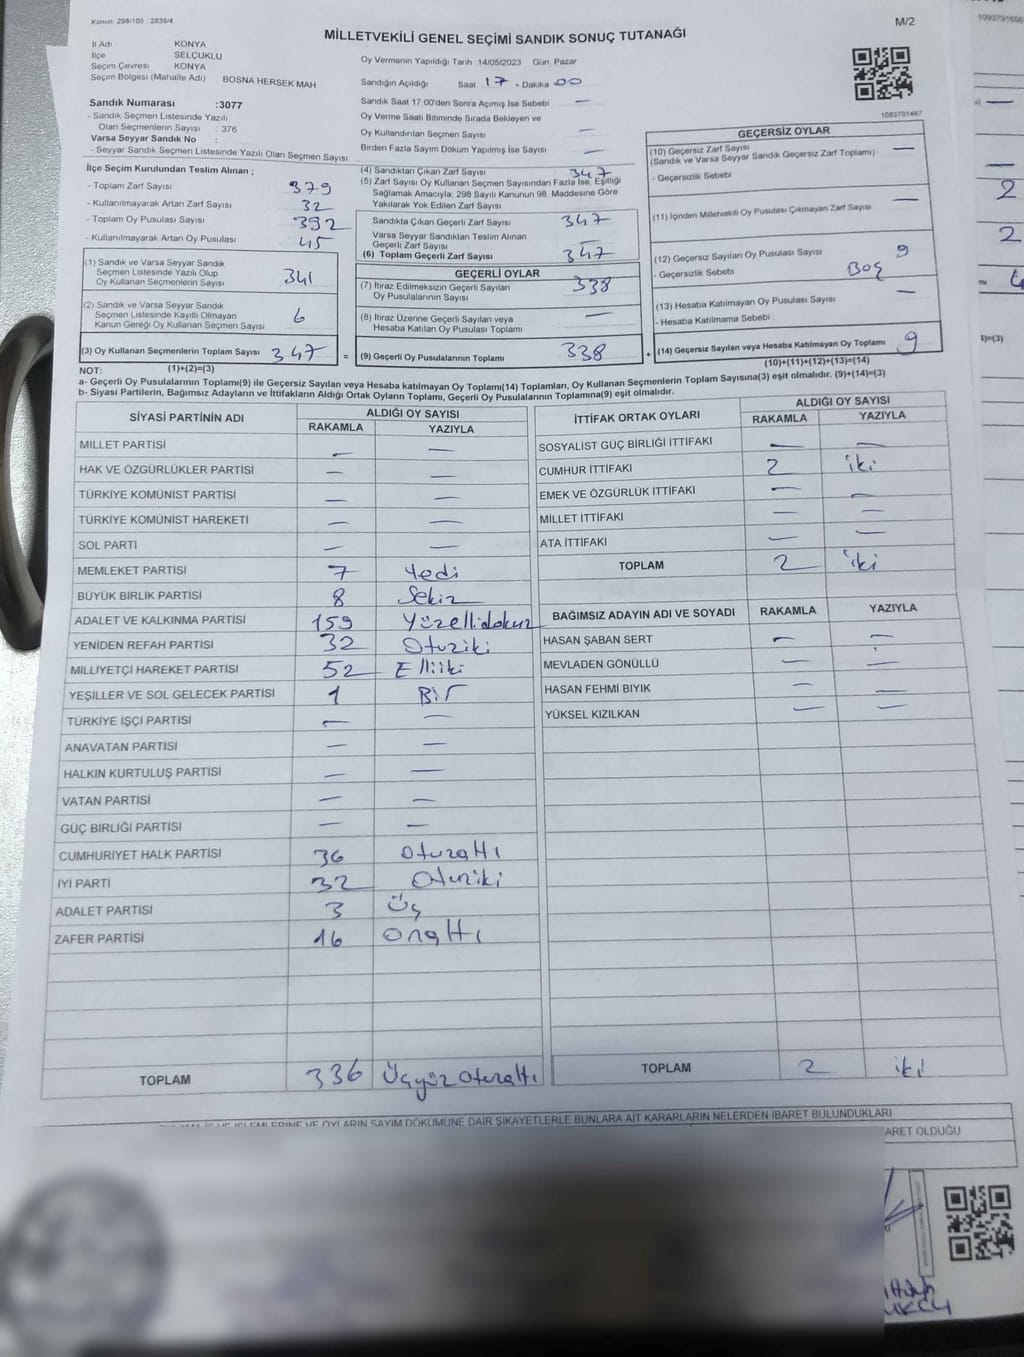 Kanun: 298/105 : 2839/4
M/2
MİLLETVEKİLİ GENEL SEÇİMİ SANDIK SONUÇ TUTANAĞI
İl Adı KONYA
İlçe SELÇUKLU
Seçim Çevresi KONYA
Seçim Bölgesi (Mahalle Adı) BOSNA HERSEK MAH
Sandık Numarası :3077
- Sandık Seçmen Listesinde Yazılı
Olan Seçmenlerin Sayısı : 376
Varsa Seyyar Sandık No :
- Seyyar Sandık Seçmen Listesinde Yazılı Olan Seçmen Sayısı
Oy Vermenin Yapıldığı Tarih :14/05/2023 Gün: Pazar
Sandığın Açıldığı Saat 17 - Dakika 00
Sandık Saat 17:00'den Sonra Açımış İse Sebebi —
Oy Verme Saati Bitiminde Sırada Bekleyen ve
Oy Kullandırılan Seçmen Sayısı —
Birden Fazla Sayım Döküm Yapılmış İse Sayısı —
1093791487
İlçe Seçim Kurulundan Teslim Alınan ;
- Toplam Zarf Sayısı 379
- Kullanılmayarak Artan Zarf Sayısı 32
- Toplam Oy Pusulası Sayısı 392
- Kullanılmayarak Artan Oy Pusulası 45
(1) Sandık ve Varsa Seyyar Sandık
Seçmen Listesinde Yazılı Olup
Oy Kullanan Seçmenlerin Sayısı 341
(2) Sandık ve Varsa Seyyar Sandık
Seçmen Listesinde Kayıtlı Olmayan
Kanun Gereği Oy Kullanan Seçmen Sayısı 6
(3) Oy Kullanan Seçmenlerin Toplam Sayısı 347 =
(1)+(2)=(3)
(4) Sandıktan Çıkan Zarf Sayısı 347
(5) Zarf Sayısı Oy Kullanan Seçmen Sayısından Fazla İse, Eşitliği
Sağlamak Amacıyla, 298 Sayılı Kanunun 98. Maddesine Göre
Yakılarak Yok Edilen Zarf Sayısı
Sandıkta Çıkan Geçerli Zarf Sayısı 347
Varsa Seyyar Sandıktan Teslim Alınan
Geçerli Zarf Sayısı —
(6) Toplam Geçerli Zarf Sayısı 347
GEÇERLİ OYLAR
(7) İtiraz Edilmeksizin Geçerli Sayılan
Oy Pusulalarının Sayısı 338
(8) İtiraz Üzerine Geçerli Sayılan veya
Hesaba Katılan Oy Pusulası Toplamı —
(9) Geçerli Oy Pusulalarının Toplamı 338 +
GEÇERSİZ OYLAR
(10) Geçersiz Zarf Sayısı —
(Sandık ve Varsa Seyyar Sandık Geçersiz Zarf Toplamı)
- Geçersizlik Sebebi
(11) İçinden Milletvekili Oy Pusulası Çıkmayan Zarf Sayısı —
(12) Geçersiz Sayılan Oy Pusulası Sayısı 9
- Geçersizlik Sebebi Boş
(13) Hesaba Katılmayan Oy Pusulası Sayısı —
- Hesaba Katılmama Sebebi :
(14) Geçersiz Sayılan veya Hesaba Katılmayan Oy Toplamı 9
(10)+(11)+(12)+(13)=(14)
NOT:
a- Geçerli Oy Pusulalarının Toplamı(9) ile Geçersiz Sayılan veya Hesaba katılmayan Oy Toplamı(14) Toplamları, Oy Kullanan Seçmenlerin Toplam Sayısına(3) eşit olmalıdır. (9)+(14)=(3)
b- Siyasi Partilerin, Bağımsız Adayların ve İttifakların Aldığı Ortak Oyların Toplamı, Geçerli Oy Pusulalarının Toplamına(9) eşit olmalıdır.
SİYASİ PARTİNİN ADI ALDIĞI OY SAYISI
RAKAMLA YAZIYLA
MİLLET PARTİSİ — —
HAK VE ÖZGÜRLÜKLER PARTİSİ — —
TÜRKİYE KOMÜNİST PARTİSİ — —
TÜRKİYE KOMÜNİST HAREKETİ — —
SOL PARTİ — —
MEMLEKET PARTİSİ 7 Yedi
BÜYÜK BİRLİK PARTİSİ 8 Sekiz
ADALET VE KALKINMA PARTİSİ 159 Yüzellidokuz
YENİDEN REFAH PARTİSİ 32 Otuziki
MİLLİYETÇİ HAREKET PARTİSİ 52 Elliiki
YEŞİLLER VE SOL GELECEK PARTİSİ 1 Bir
TÜRKİYE İŞÇİ PARTİSİ — —
ANAVATAN PARTİSİ — —
HALKIN KURTULUŞ PARTİSİ — —
VATAN PARTİSİ — —
GÜÇ BİRLİĞİ PARTİSİ — —
CUMHURİYET HALK PARTİSİ 36 Otuzaltı
İYİ PARTİ 32 Otuziki
ADALET PARTİSİ 3 Üç
ZAFER PARTİSİ 16 Onaltı
TOPLAM 336 Üçyüz Otuzaltı
İTTİFAK ORTAK OYLARI ALDIĞI OY SAYISI
RAKAMLA YAZIYLA
SOSYALİST GÜÇ BİRLİĞİ İTTİFAKI — —
CUMHUR İTTİFAKI 2 iki
EMEK VE ÖZGÜRLÜK İTTİFAKI — —
MİLLET İTTİFAKI — —
ATA İTTİFAKI — —
TOPLAM 2 iki
BAĞIMSIZ ADAYIN ADI VE SOYADI RAKAMLA YAZIYLA
HASAN ŞABAN SERT — —
MEVLADEN GÖNÜLLÜ — —
HASAN FEHMİ BIYIK — —
YÜKSEL KIZILKAN — —
TOPLAM 2 iki
İŞLEMLERİNE VE OYLARIN SAYIM DÖKÜMÜNE DAİR ŞİKAYETLERLE BUNLARA AİT KARARLARIN NELERDEN İBARET BULUNDUKLARI
ARET OLDUĞU
2
2
1)=(3)